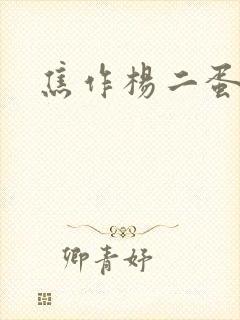 焦作杨二蛋
卿青妤